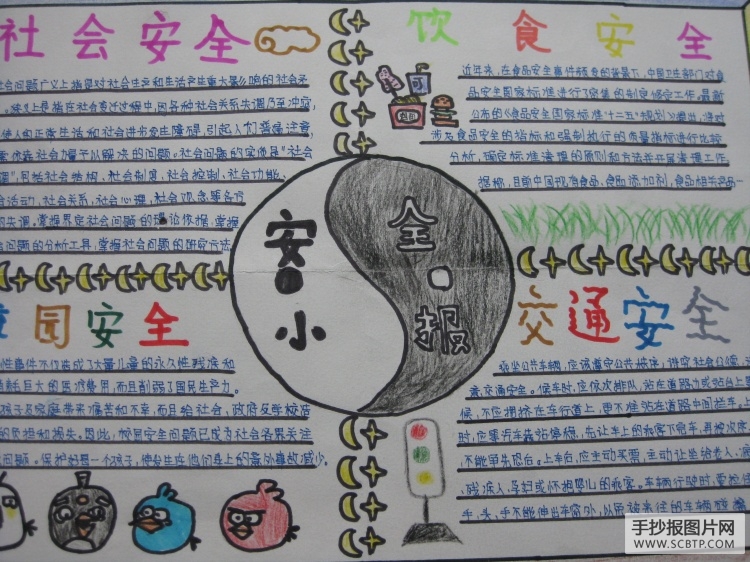 社会安全
会问题广义上指是对社会生产和生活产生重大影响的社会矛
狭义上是指在社会变迁过程中,因各种社会关系失调乃至冲突,
使人们正常生活和社会进步发生障碍,引起人们普遍注意,
要依靠社会力量予以解决的问题。社会问题的实体是"社会
",包括社会结构,社会制度,社会控制,社会功能,
会活动,社会关系,社会心理,社会观念等各方
的失调,掌握界定社会问题的理论依据,掌握
会问题的分析工具,掌握社会问题的研究方法
饮食安全
近年来,在食品安全事件频发的背景下,中国卫生部门对食
品安全国家标准进行了密集的制定修定工作。最新
公布的《食品安全国家标准"十二五"规划》提出,将对
涉及食品安全的指标和强制执行的质量指标进行比较
分析,确定标准清理的原则和方法并开展清理工作
据称,目前中国现有食品,食品添加剂,食品相关产品
安全
小报
园安全
性事件不仅造成了大量儿童的永久性残疾和
消耗巨大的医疗费用,而且削弱了国民生产力。
孩子及家庭带来痛苦和不幸,而且给社会,政府及学校造
的负担和损失。因此,校园安全问题已成为社会各界关注
问题。保护好每一个孩子,使发生在他们身上的意外事故减少。
交通安全
乘坐公共车辆,应该遵守公共秩序,讲究社会公德,注
意交通安全。候车时,应依次排队,站在道路边或站台上等
候,不应拥挤在车行道上,更不准站在道路中间拦车。上
时,应等汽车靠站停稳,先让车上的乘客下完车,再按次序
不能争先恐后。上车后,应主动买票,主动让坐给老人,病
残疾人,孕妇或怀抱婴儿的乘客。车辆行驶时,要拉住
手,头,手不能伸出车窗外,以免被来往的车辆碰擦
手抄报图片网
WWW.SCBTP.COM